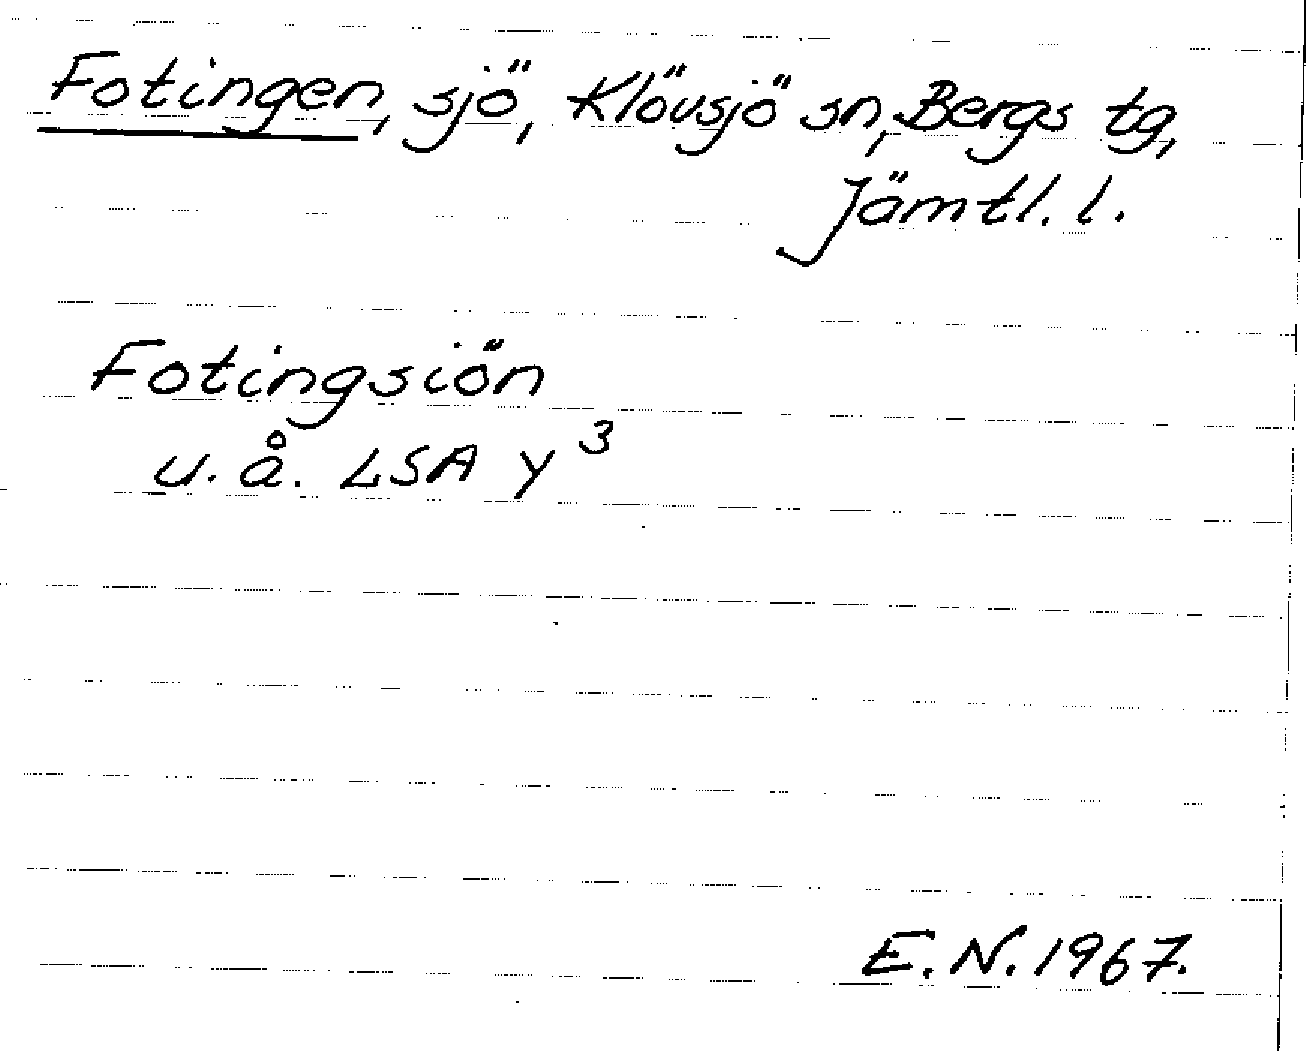 Fotingen, sjö, Klövsjö sn, Bergs tg,
Jämtl. l.
Fotingsiön
u. å. LSA Y³
E. N. 1967.